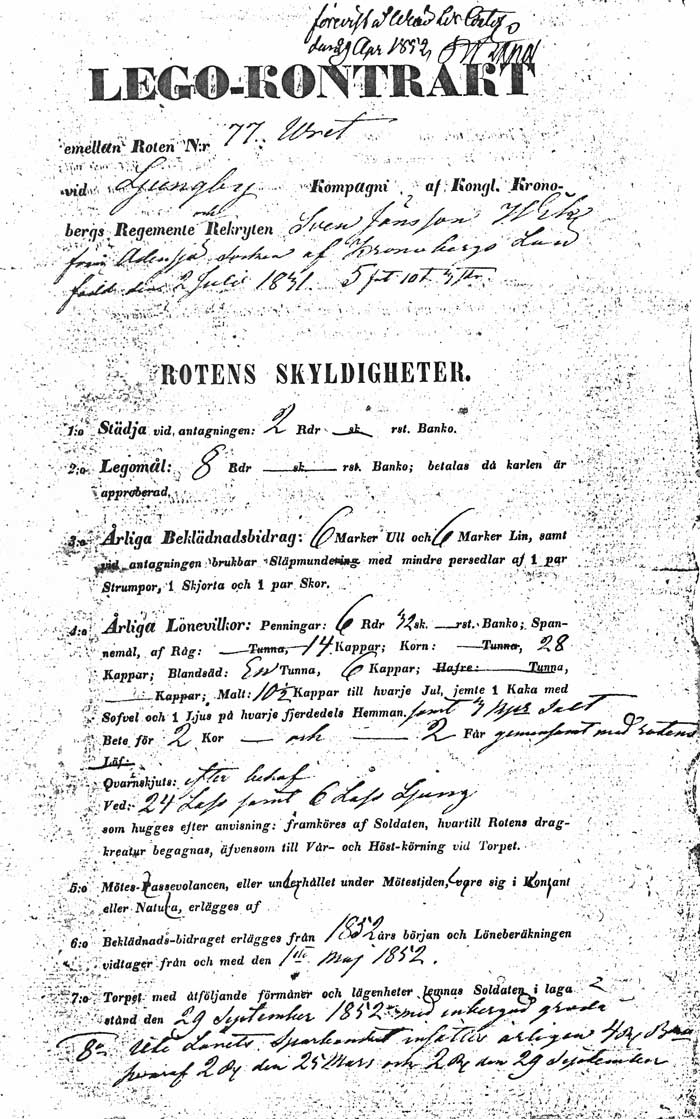 den 29 Apr 1852
LEGO-KONTRAKT
emellan Roten N:r 77. Uret
vid Ljungby Kompagni af Kongl. Krono-
bergs Regemente och Rekryten Sven Jönsson
från socken af Kronobergs Län
född den 2 Julii 1831. 5 fot 10 t.
ROTENS SKYLDIGHETER.
1:o Städja vid antagningen: 2 Rdr sk. rst. Banko.
2:o Legomål: 8 Rdr sk. rst. Banko; betalas då karlen är
approberad.
3:o Årliga Beklädnadsbidrag: 6 Marker Ull och 6 Marker Lin, samt
vid antagningen brukbar Släpmundering med mindre persedlar af 1 par
Strumpor, 1 Skjorta och 1 par Skor.
4:o Årliga Lönevilkor: Penningar: 6 Rdr 32 sk. rst. Banko; Span-
nemål, af Råg: Tunna, 14 Kappar; Korn: Tunna, 28
Kappar; Blandsäd: En Tunna, 6 Kappar; Hafre: Tunna,
Kappar; Malt: 10½ Kappar till hvarje Jul, jemte 1 Kaka med
Sofvel och 1 Ljus på hvarje fjerdedels Hemman. samt Salt
Bete för 2 Kor och 2 Får gemensamt med rotens
Löf:
Qvarnskjuts: efter behof
Ved: 24 Lass samt 6 Lass Ljung
som hugges efter anvisning: framköres af Soldaten, hvartill Rotens drag-
kreatur begagnas, äfvensom till Vår- och Höst-körning vid Torpet.
5:o Mötes-Passevolancen, eller underhållet under Mötestiden, vare sig i Kontant
eller Natura, erlägges af
6:o Beklädnads-bidraget erlägges från 1852 års början och Löneberäkningen
vidtager från och med den 1sta Maj 1852.
7:o Torpet med åtföljande förmåner och lägenheter lemnas Soldaten i laga
stånd den 29 September 1852 med inbergad gröda
8:o Uti Länets Sparbanken insättes årligen 4 Rd B:co
hvaraf 2 Rd den 25 Mars och 2 Rd den 29 September